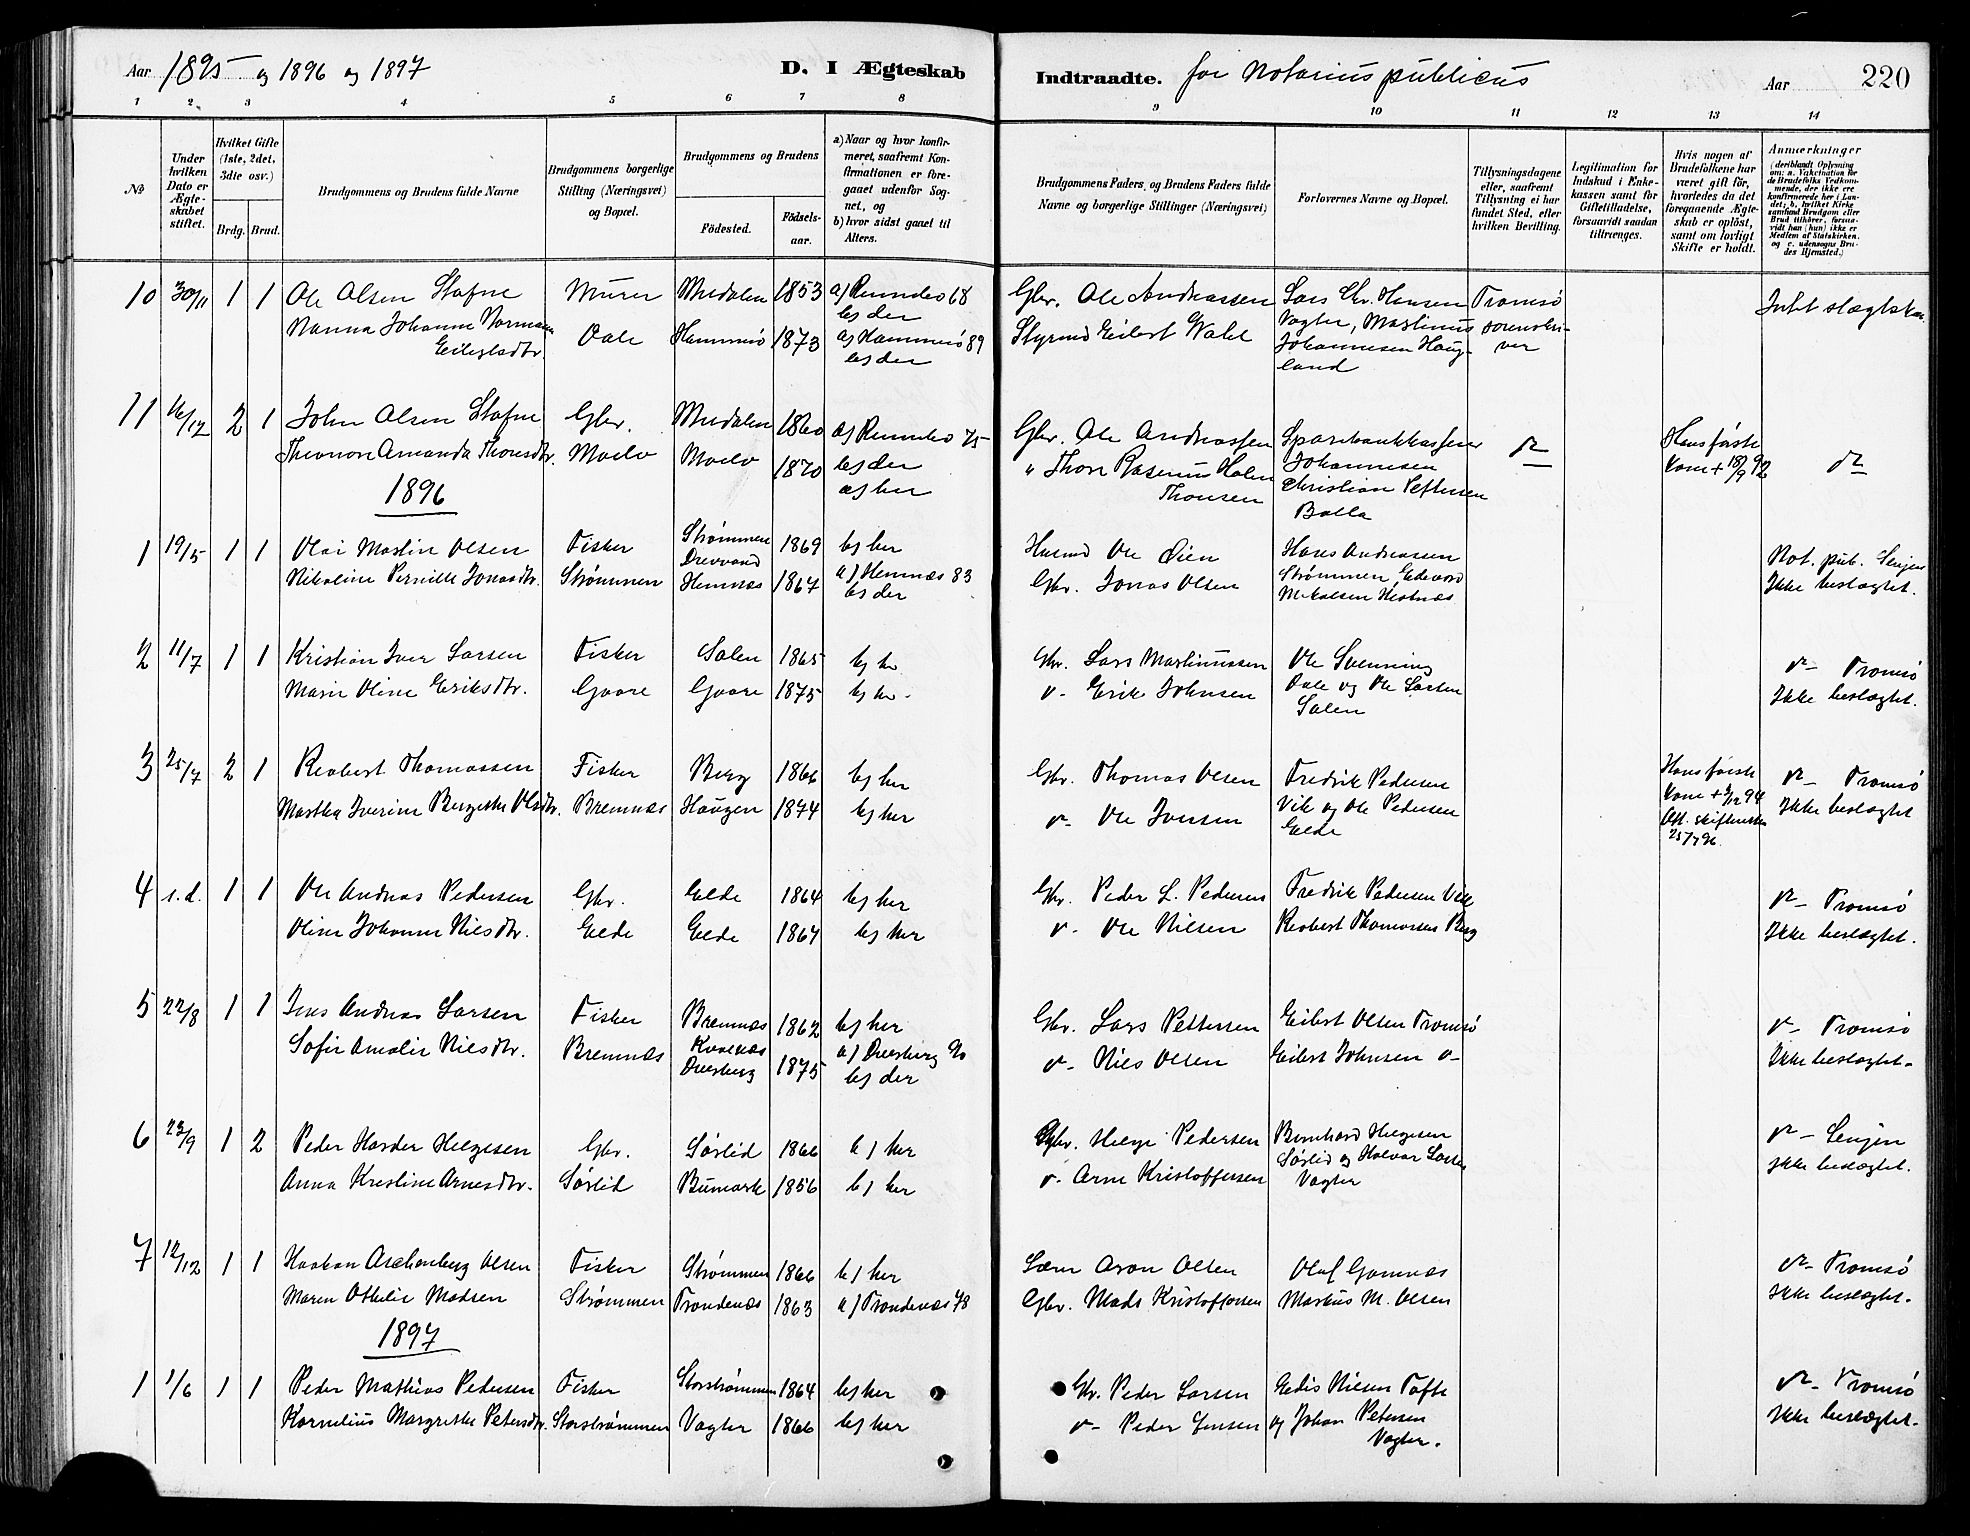 Aar 1895 og 1896 og 1897
D. I Ægteskab
Indtraadte. for Notarius publicus
Aar 220
1 2 3 4 5 6 7 8 9 10 11 12 13 14
No
Under hvilken Dato er Ægteskabet stiftet.
Hvilket Gifte (1ste, 2det, 3die osv.)
Brdg. Brud.
Brudgommens og Brudens fulde Navne
Brudgommens borgerlige Stilling (Næringsvei) og Bopæl.
Brudgommens og Brudens
Fødested.
Fødselsaar.
a) Naar og hvor konfirmeret, saafremt Konfirmationen er foregaaet udenfor Sognet, og
b) hvor sidst gaaet til Alters.
Brudgommens Faders, og Brudens Faders fulde Navne og borgerlige Stillinger (Næringsvei)
Forlovernes Navne og Bopæl.
Tillysningsdagene eller, saafremt Tillysning ei har fundet Sted, efter hvilken Bevilling.
Legitimation for Indskud i Enkekassen samt for Giftetilladelse, forsaavidt saadan tiltrænges.
Hvis nogen af Brudefolkene har været gift før, hvorledes da det foregaaende Ægteskab er opløst, samt om lovligt Skifte er holdt.
Anmærkninger (deriblandt Oplysning om: a. Vakcination for de Brudefolks Vedkommende, der ikke ere konfirmerede her i Landet; b. hvilket Kirkesamfund Brudgom eller Brud tilhører, forsaavidt han (hun) ikke er Medlem af Statskirken, og c. udensogns Brudes Hjemsted.)
10 30/11 1 1 Ole Olsen Stafne Murer 1853 a) Rennebo 68 Gbr. Ole Andreassen Lars Chr. Hansen Tromsø
Nanna Johanne Normann b) der Vagter, Martinus sorenskri-
Eilertsdtr. Dale Hammerø 1873 a) Hammerø 89 Styrmd Eilert Wahl Johannesen Haug- ver
b) der land
11 16/12 2 1 John Olsen Stafne Gbr. 1860 a) Rennebo 75 Gbr. Ole Andreassen Sparebankkasserer Hans første
Theonore Amanda Thorsdtr. Moelv Moelv 1870 b) der " Thore Rasmus Holm Johannesen Kone + 18/9 92
a) her Thonsen Christian Pettersen
Balla
1896
1 19/5 1 1 Olai Martin Olsen Fisker Strømmen 1869 b) her Husmd Ole Øien Hans Andreassen Not. pub. Senjen
Nikoline Pernille Jonasdtr. Strømmen Hemnæs 1867 a) Hemnæs 83 Gbr. Jonas Olsen Strømmen, Edevard Ikke beslægtet.
b) der Mikalsen Hestnæs
2 11/7 1 1 Kristian Iver Larsen Fisker Salen 1865 b) her Gbr. Lars Martinussen Ole Svenning Tromsø
Marie Oline Eriksdtr. Gaare Gaare 1875 b) her Erik Johnsen Dale og Ole Larsen Ikke beslægtet.
Salen
3 25/7 2 1 Reobert Thomassen Fisker Berg 1866 b) her Gbr. Thomas Olsen Fredrik Pedersen Hans første Tromsø
Martha Iverine Bergethe Olsdtr. Bremnæs Haugen 1874 b) her Ole Iversen Vik og Ole Pedersen Kone + 3/12 94 Ikke beslægtet
Elde 25/7 96.
4 s.d. 1 1 Ole Andreas Pedersen Gbr. Elde 1864 b) her Gbr. Peder L. Pedersen Fredrik Pedersen Vik Tromsø
Oline Johanne Nilsdtr. Elde Elde 1867 b) her Ole Nilsen Reobert Thomassen Berg Ikke beslægtet.
5 22/8 1 1 Jens Andreas Larsen Fisker Bremnæs 1862 b) her Gbr. Lars Pettersen Eilert Olsen Tromsø Tromsø
Sofie Amalie Nilsdtr. Bremnæs Kvalnæs Dverberg 1875 a) Dverberg 90 Nils Olsen Eilert Johnsen Ikke beslægtet.
b) der
6 23/9 1 2 Peder Harder Helgesen Gbr. Sørlid 1866 b) her Gbr. Helge Pedersen Bernhard Helgesen Senjen
Anna Kristine Arnesdtr. Sørlid Bumark 1856 b) her Arne Kristoffersen Sørlid og Halvar Larsen Ikke beslægtet.
Vagter
7 12/12 1 1 Haakon Aschenberg Olsen Fisker Strømmen 1866 b) her Aron Olsen Oluf Gamnæs Tromsø
Maren Othelie Madsen Strømmen Trondenæs 1863 a) Trondenæs 78 Gbr. Mads Kristoffersen Markus M. Olsen Ikke beslægtet.
1897
1 1/6 1 1 Peder Mathias Pedersen Fisker Storstrømmen 1864 b) her Gbr. Peder Larsen Edis Nilsen Tofte Tromsø
Kornelius Margrethe Petersdtr. Storstrømmen Vagter 1866 b) her Peder Jensen og Johan Petersen Ikke beslægtet.
Vagter.